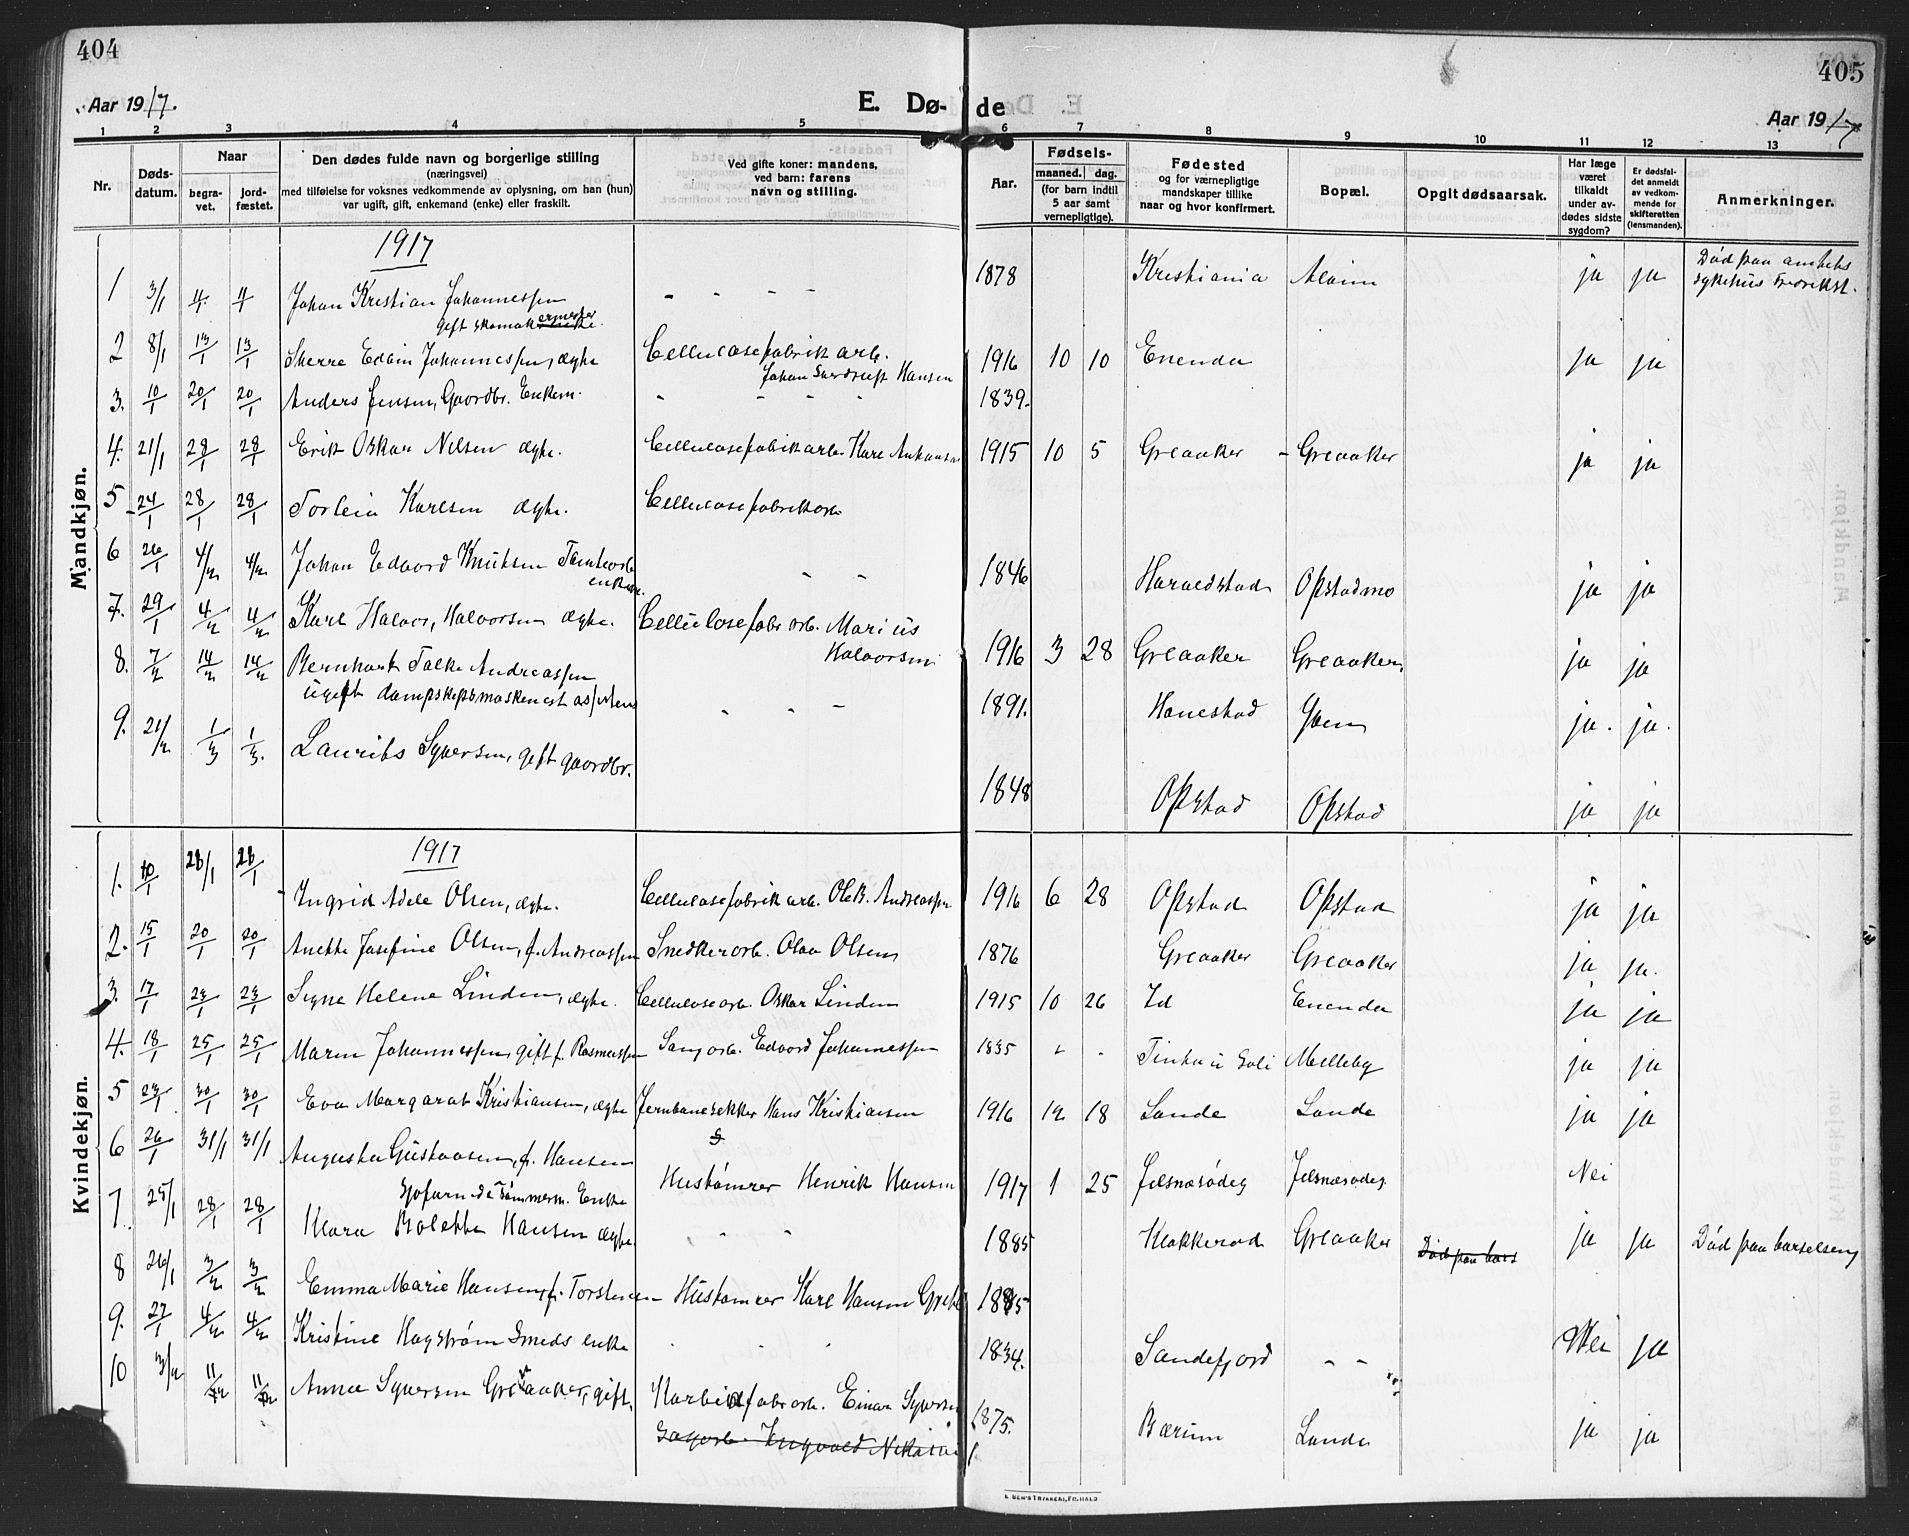 404
Aar 1917.
E. Dø-
1 2 3 4 5
Nr.
Døds-
datum.
Naar
begra-
vet.
jord-
fæstet.
Den dødes fulde navn og borgerlige stilling
(næringsvei)
med tilføielse for voksnes vedkommende av oplysning, om han (hun)
var ugift, gift, enkemand (enke) eller fraskilt.
Ved gifte koner: mandens,
ved barn: farens
navn og stilling.
Mandkjøn.
1917
1 3/1 11/1 11/1 Johan Kristian Johannessen - - - -
gift skomakermester
2 8/1 13/1 13/1 Sverre Edvin Johannessen, ægte Cellulosefabrik arb.
Johan Hansen
3. 10/1 20/1 20/1 Anders Jensen, Gaardbr. Enkem. - - - -
4. 21/1 28/1 28/1 Erik Oskar Nilsen ægte. Cellulosefabrik arb. Karl
5 24/1 28/1 28/1 Torleiv Karlsen ægte. Cellulosefabrik arb
6 26/1 4/2 4/2 Johan Edvard Knutsen Tomtearb - -
enkem.
7. 29/1 4/2 4/2 Karl Halvor, Halvorsen ægte. Cellulosefabr arb. Marius
Halvorsen
8. 7/2 14/2 14/2 Bernhart Falke Andreassen
ugift dampskipsmaskinist assistent - - -
9. 21/2 1/3 1/3. Laurits Syversen, gift gaardbr.
Kvindekjøn.
1917
1. 10/1 28/1 28/1 Ingrid Adele Olsen, ægte. Cellulosefabrik arb. Ole B. Andreassen
2. 15/1 20/1 20/1 Anette Josefine Olsen, f. Andreassen Snedkerarb. Olav Olsen
3. 17/1 24/1 24/1 Signe Helene Linden, ægte. Cellulosearb. Oskar Linden
4. 18/1 25/1 25/1 Maren Johannessen, gift f. Rasmussen Sagarb. Edvard Johannessen
5 23/1 30/1 30/1 Eva Margarat Kristiansen, ægte Jernbane Hans Kristiansen
6 26/1 31/1 31/1 Augusta Gustavsen, f. Hansen
Tømmerm. Enke Hustømrer Henrik Hansen
7 25/1 28/1 28/1 Klara Bolette Hansen ægte. - -
8 26/1 3/2 3/2 Emma Marie Hansen, f. Torstensen - Hustømrer Karl Hansen
9. 27/1 4/2 4/2 Kristine Hagstrøm Smeds enke - - -
10 3/2 11/2 11/2 Anna Syversen Greaaker, gift. Karbidfabr arb. Einar Syversen
Sagarb. Ingvald
405
de
Aar 1917
6 7 8 9 10 11 12 13
Aar.
Fødsels-
maaned. dag.
(for barn indtil
5 aar samt
vernepligtige).
Fødested
og for værnepligtige
mandskaper tillike
naar og hvor konfirmert.
Bopæl.
Opgit dødsaarsak.
Har læge
været
tilkaldt
under av-
dødes sidste
sygdom?
Er dødsfal-
det anmeldt
av vedkom-
mende for
skifteretten
(lensmanden).
Anmerkninger.
1878 Kristiania Alvim ja ja Død paa amtets
sykehus Fredrikst.
1916 10 10 Enenda ja ja
1839.
1915 10 5 Greaaker - Greaaker ja ja
1846 Haraldstad Opstadmo ja ja
1916 3 28 Greaaker Greaaker, ja ja
1891. Hanestad Yven ja. ja.
1848 Opstad Opstad ja ja
1916 6 28 Opstad Opstad ja ja
1876 Greaaker Greaaker ja ja.
1915 10 26 Id Enenda ja ja
1835 " - i Melleby ja ja
1916 12 18 Lande Lande ja ja
1917 1 25 Nei
1885 Klokkerød Greaaker Død paa bars ja ja Død paa barselseng
1885
1834. Sandefjord - - Nei ja
1875. Bærum Lande ja ja